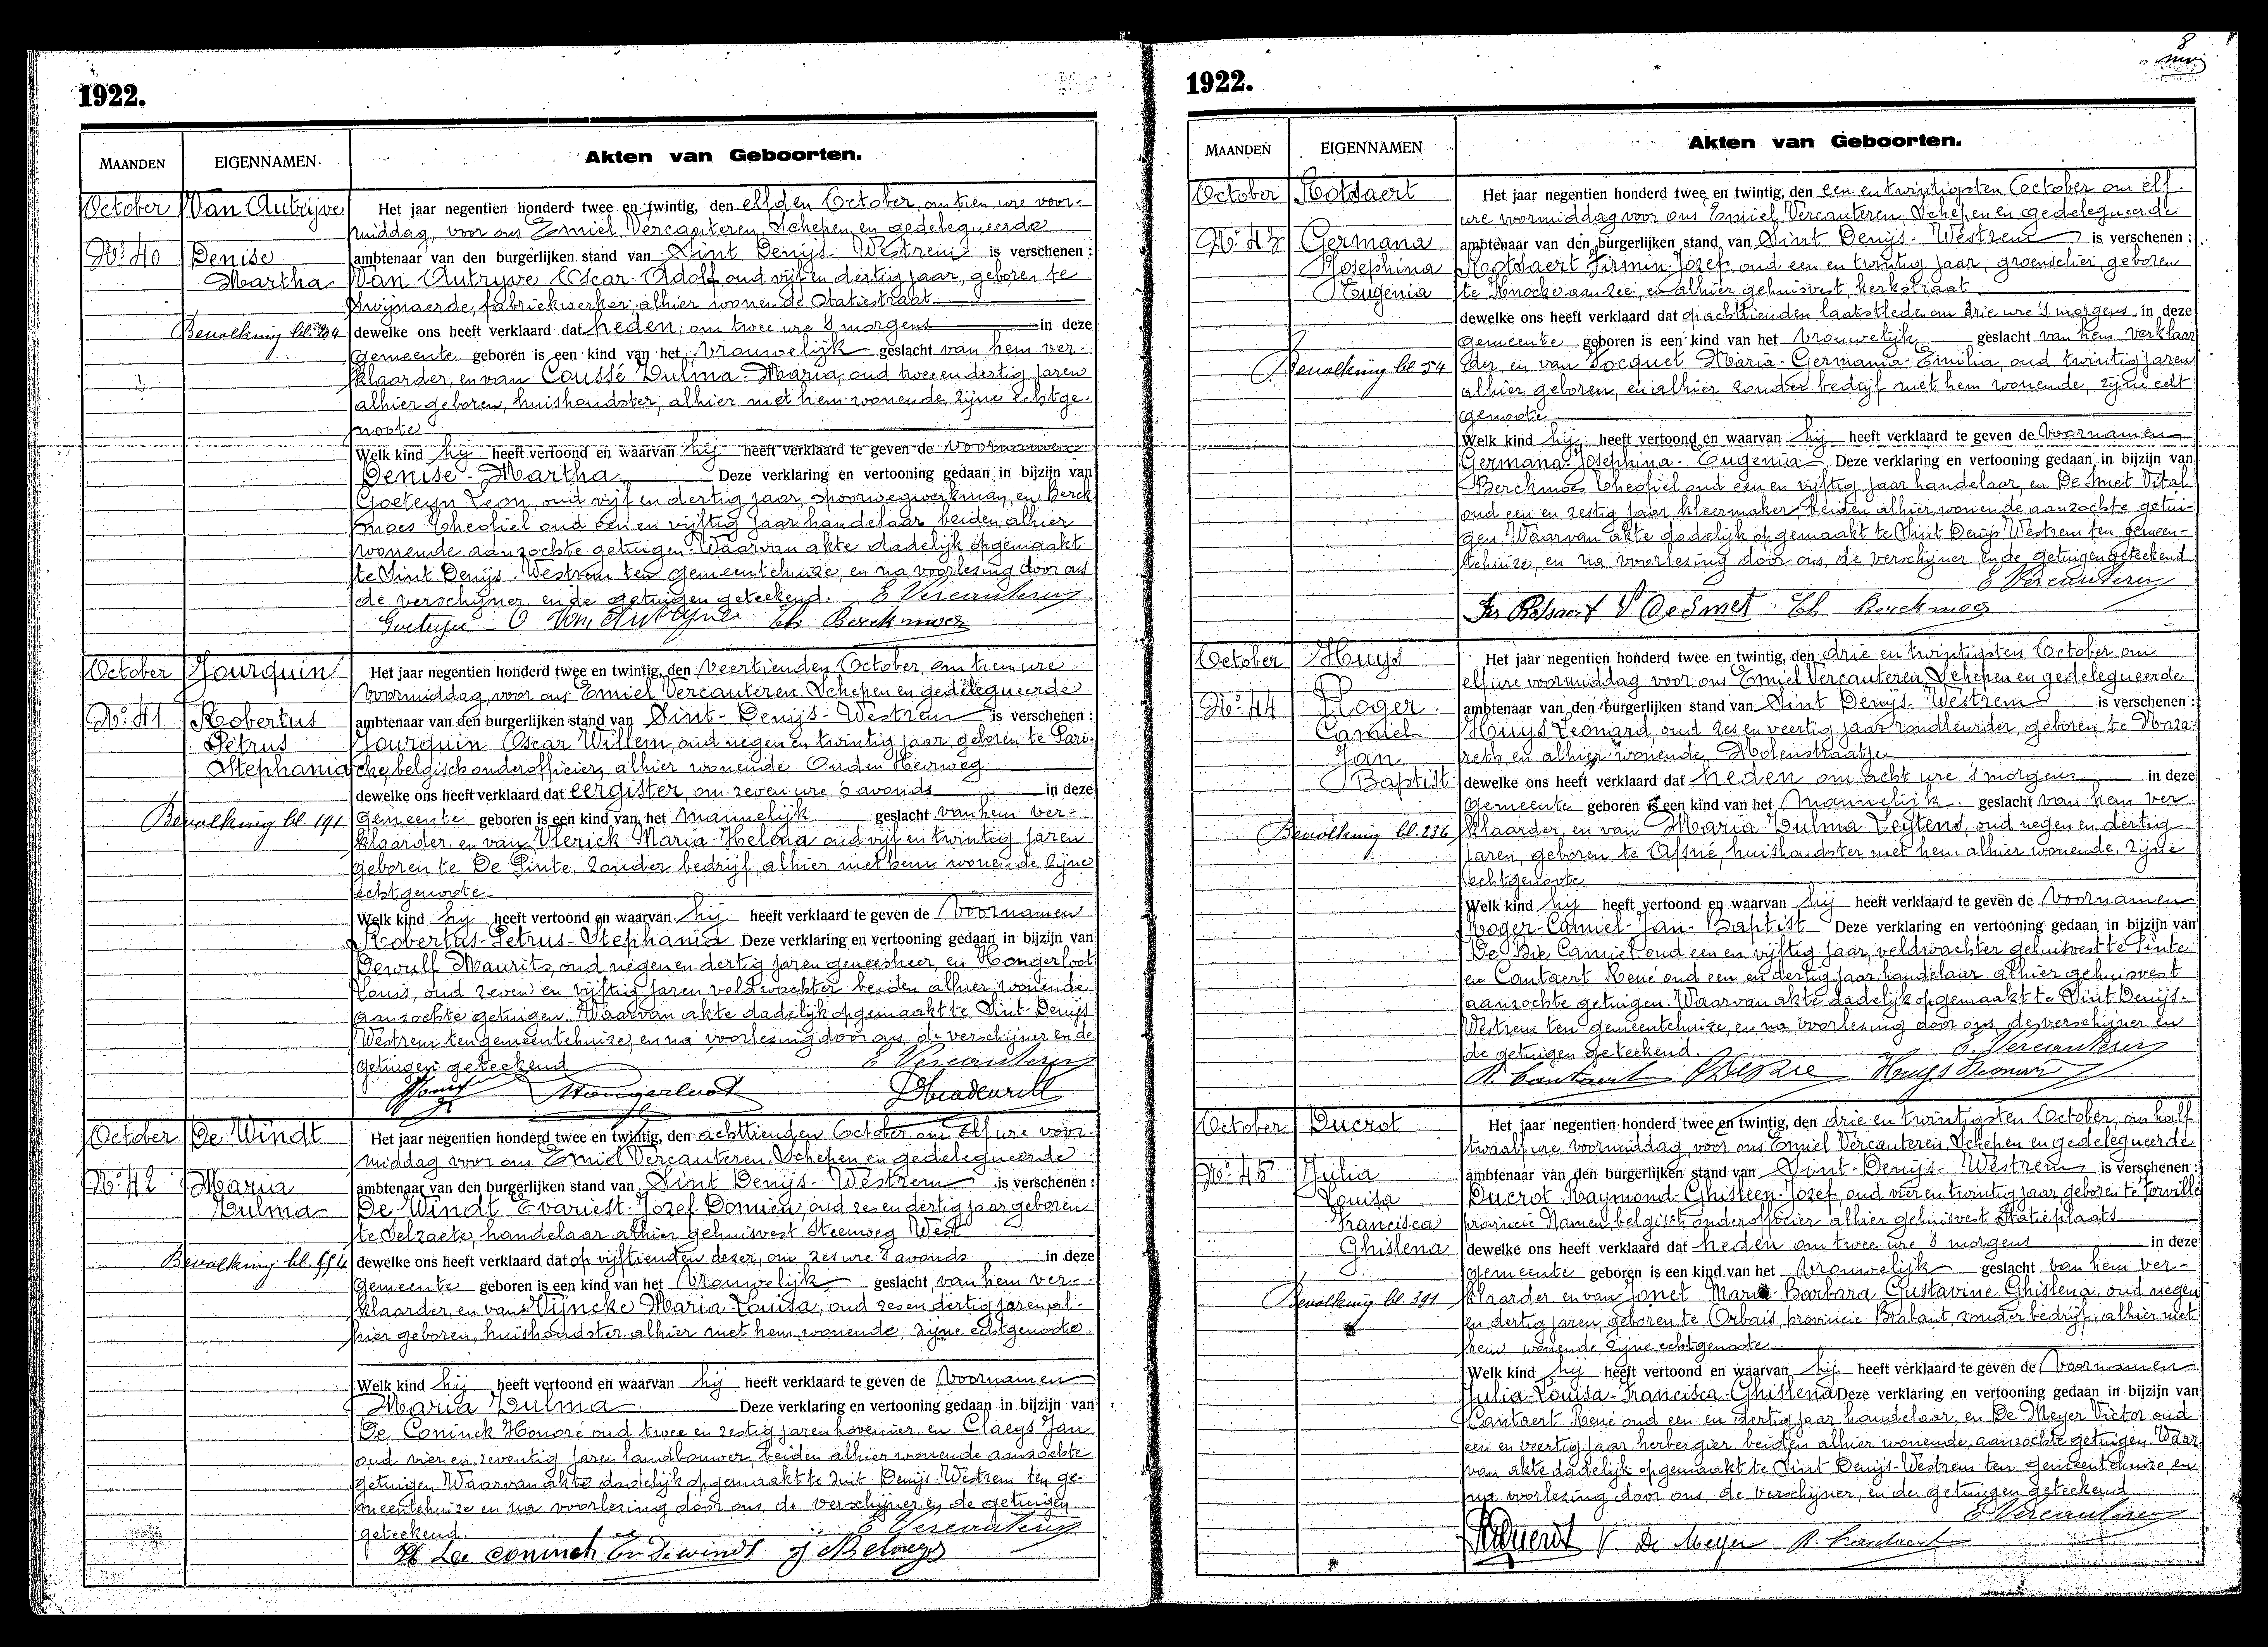 1922.
MAANDEN
EIGENNAMEN
Akten van Geboorten.
October
Van Autrijve
No. 40
Denise
Martha
Bevolking bl. 204
Het jaar negentien honderd twee en twintig, den elfden October, om tien ure voor-
middag, voor ons Emiel Vercauteren, Schepen en gedelegueerde
ambtenaar van den burgerlijken stand van Sint Denijs-Westrem is verschenen:
Van Autryve Oscar-Adolf oud vijf en dertig jaar, geboren te
Zwijnaerde, fabriekwerker, alhier wonende Statiestraat
dewelke ons heeft verklaard dat heden, om twee ure 's morgens in deze
gemeente geboren is een kind van het vrouwelijk geslacht van hem ver-
klaarder, en van Coussé Zulma-Maria, oud twee en dertig jaren
alhier geboren, huishoudster, alhier met hem wonende, zijne echtge-
noote
Welk kind hij heeft vertoond en waarvan hij heeft verklaard te geven de voornamen
Denise-Martha Deze verklaring en vertooning gedaan in bijzijn van
Goeteyn Leon, oud vijf en dertig jaar, spoorwegwerkman, en Berck
moes Theofiel oud een en vijftig jaar handelaar beiden alhier
wonende aanzochte getuigen. Waarvan akte dadelijk opgemaakt
te Sint Denijs-Westrem ten gemeentehuize, en na voorlezing door ons
de verschijner en de getuigen geteekend. E Vercauteren
Goeteyn O Van Autryve Th Berckmoes
October
Jourquin
No. 41
Robertus
Petrus
Stephania
Bevolking bl. 191
Het jaar negentien honderd twee en twintig, den veertienden October, om tien ure
voormiddag, voor ons Emiel Vercauteren, Schepen en gedelegueerde
ambtenaar van den burgerlijken stand van Sint-Denijs-Westrem is verschenen:
Jourquin Oscar Willem, oud negen en twintig jaar, geboren te
belgisch onderofficier, alhier wonende Ouden Heerweg
dewelke ons heeft verklaard dat eergister, om zeven ure 's avonds in deze
gemeente geboren is een kind van het mannelijk geslacht van hem ver-
klaarder, en van Vlerick Maria-Helena oud vijf en twintig jaren
geboren te De Pinte, zonder bedrijf, alhier met hem wonende zijne
echtgenoote
Welk kind hij heeft vertoond en waarvan hij heeft verklaard te geven de voornamen
Robertus-Petrus-Stephania Deze verklaring en vertooning gedaan in bijzijn van
Dewulf Maurits, oud negen en dertig jaren geneesheer, en Hongerloot
Louis, oud zeven en vijftig jaren veldwachter beiden alhier wonende
aanzochte getuigen. Waarvan akte dadelijk opgemaakt te Sint-Denijs
Westrem ten gemeentehuize, en na voorlezing door ons, de verschijner en de
getuigen geteekend E Vercauteren
Hongerloot
October
De Windt
No. 42
Maria
Zulma
Bevolking bl.
Het jaar negentien honderd twee en twintig, den achttienden October om elf ure voor-
middag voor ons Emiel Vercauteren Schepen en gedelegueerde
ambtenaar van den burgerlijken stand van Sint Denijs-Westrem is verschenen:
De Windt Evariest-Jozef-Domien, oud zes en dertig jaar geboren
te Selzaete, handelaar alhier gehuisvest Steenweg West
dewelke ons heeft verklaard dat op vijftienden deser, om zes ure 's avonds in deze
gemeente geboren is een kind van het vrouwelijk geslacht van hem ver-
klaarder, en van Wijncke Maria Louisa, oud zes en dertig jaren, al-
hier geboren, huishoudster, alhier met hem wonende, zijne echtgenoote
Welk kind hij heeft vertoond en waarvan hij heeft verklaard te geven de voornamen
Maria Zulma Deze verklaring en vertooning gedaan in bijzijn van
De Coninck Honoré oud twee en zestig jaren hovenier, en Claeys Jan
oud vier en zeventig jaren landbouwer, beiden alhier wonende aanzochte
getuigen, Waarvan akte dadelijk opgemaakt te Sint Denijs-Westrem ten ge-
meentehuize en na voorlezing door ons, de verschijner en de getuigen
geteekend. E Vercauteren
H De coninck Ev Dewindt
1922.
8
MAANDEN
EIGENNAMEN
Akten van Geboorten.
October
Rotsaert
No. 43
Germana
Josephina
Eugenia
Bevolking bl. 54
Het jaar negentien honderd twee en twintig, den een en twintigsten October om elf
ure voormiddag voor ons Emiel Vercauteren, Schepen en gedelegueerde
ambtenaar van den burgerlijken stand van Sint Denijs-Westrem is verschenen:
Rotsaert Firmin-Jozef, oud een en twintig jaar, groenselier, geboren
te Knocke aan zee, en alhier gehuisvest, kerkstraat
dewelke ons heeft verklaard dat op achttienden laatstleden om drie ure 's morgens in deze
gemeente geboren is een kind van het vrouwelijk geslacht van hem verklaar
der, en van Focquet Maria-Germania-Emilia, oud twintig jaren
alhier geboren, en alhier zonder bedrijf met hem wonende, zijne echt
genoote
Welk kind hij heeft vertoond en waarvan hij heeft verklaard te geven de voornamen
Germana-Josephina-Eugenia Deze verklaring en vertooning gedaan in bijzijn van
Berckmoes Theofiel oud een en vijftig jaar handelaar, en De Smet Vital
oud een en zestig jaar, kleermaker, beiden alhier wonende aanzochte getui-
gen Waarvan akte dadelijk opgemaakt te Sint Denijs Westrem ten gemeen-
tehuize, en na voorlezing door ons, de verschijner en de getuigen geteekend
E Vercauteren
Fir Rotsaert V DeSmet Th Berckmoes
October
Huys
No. 44
Roger
Camiel
Jan
Baptist
Bevolking bl. 236
Het jaar negentien honderd twee en twintig, den drie en twintigsten October om
elf ure voormiddag voor ons Emiel Vercauteren, Schepen en gedelegueerde
ambtenaar van den burgerlijken stand van Sint Denijs-Westrem is verschenen:
Huys Leonard, oud zes en veertig jaar rondleurder, geboren te Naza-
reth, en alhier wonende, Molenstraatje
dewelke ons heeft verklaard dat heden om acht ure 's morgens in deze
gemeente geboren is een kind van het mannelijk geslacht van hem ver
klaarder, en van Maria Zulma Leytens, oud negen en dertig
jaren, geboren te Afsné, huishoudster met hem alhier wonende, zijne
echtgenoote
Welk kind hij heeft vertoond en waarvan hij heeft verklaard te geven de voornamen
Roger-Camiel-Jan-Baptist Deze verklaring en vertooning gedaan in bijzijn van
De Bie Camiel, oud een en vijftig jaar, veldwachter gehuisvest te Pinte
en Cantaert René oud een en dertig jaar, handelaar alhier gehuisvest
aanzochte getuigen. Waarvan akte dadelijk opgemaakt te Sint Denijs-
Westrem ten gemeentehuize, en na voorlezing door ons, de verschijner en
de getuigen geteekend. E. Vercauteren
R. Cantaert C DeBie Huys Leonard
October
Ducrot
No. 45
Julia
Louisa
Francisca
Ghislena
Bevolking bl. 391
Het jaar negentien honderd twee en twintig, den drie en twintigsten October, om half
twaalf ure voormiddag, voor ons Emiel Vercauteren, Schepen en gedelegueerde
ambtenaar van den burgerlijken stand van Sint-Denijs-Westrem is verschenen:
Ducrot Raymond-Ghisleen-Jozef, oud vier en twintig jaar, geboren te Sorville
provincie Namen, belgisch onderofficier alhier gehuisvest Statieplaats
dewelke ons heeft verklaard dat heden om twee ure 's morgens in deze
gemeente geboren is een kind van het vrouwelijk geslacht van hem ver-
klaarder en van Jonet Maria-Barbara Gustavine Ghislena, oud negen
en dertig jaren, geboren te Orbais, provincie Brabant, zonder bedrijf, alhier met
hem wonende, zijne echtgenoote
Welk kind hij heeft vertoond en waarvan hij heeft verklaard te geven de voornamen
Julia-Louisa-Francisca-Ghislena Deze verklaring en vertooning gedaan in bijzijn van
Cantaert René oud een en dertig jaar handelaar, en De Meyer Victor oud
een en veertig jaar, herbergier, beiden alhier wonende, aanzochte getuigen. Waar
van akte dadelijk opgemaakt te Sint Denijs-Westrem ten gemeentehuize, en
na voorlezing door ons, de verschijner, en de getuigen geteekend
E Vercauteren
V. De Meyer R. Cantaert